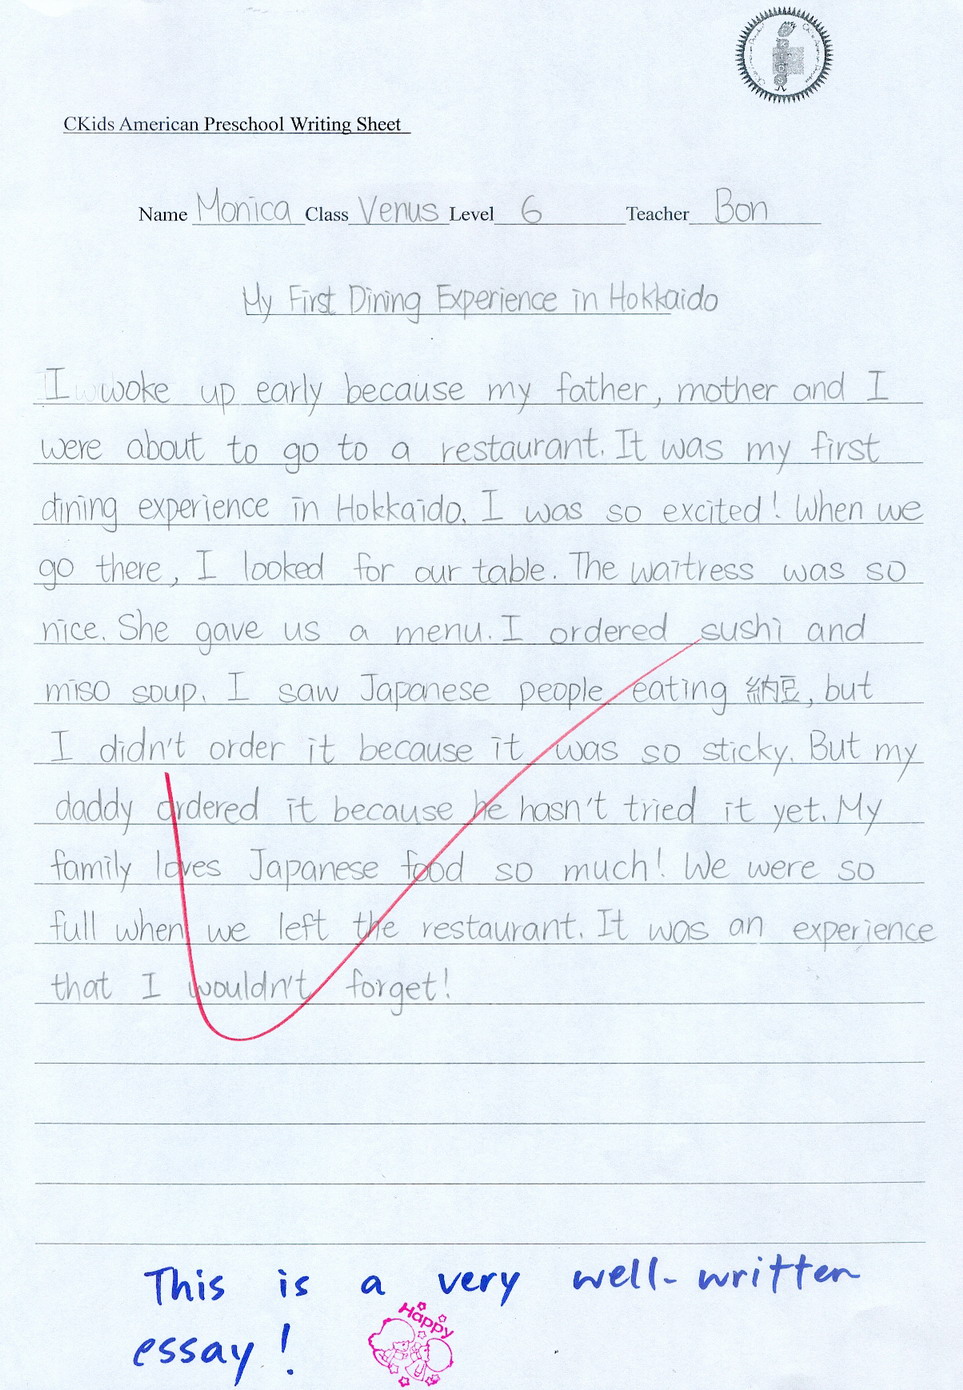 CKids American Preschool Writing Sheet
Name Monica Class Venus Level 6 Teacher Bon
My First Dining Experience in Hokkaido
I woke up early because my father, mother and I
were about to go to a restaurant. It was my first
dining experience in Hokkaido. I was so excited! When we
go there, I looked for our table. The waitress was so
nice. She gave us a menu. I ordered sushi and
miso soup. I saw Japanese people eating 納豆, but
I didn't order it because it was so sticky. But my
daddy ordered it because he hasn't tried it yet. My
family loves Japanese food so much! We were so
full when we left the restaurant. It was an experience
that I wouldn't forget!
This is a very well-written
essay!
Happy